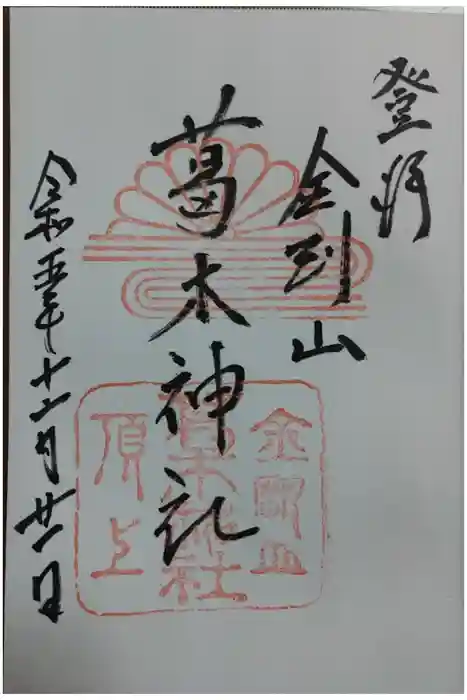 登拝
金剛山
葛木神社
令和五年十二月廿一日
金剛山
葛木神社
頂上